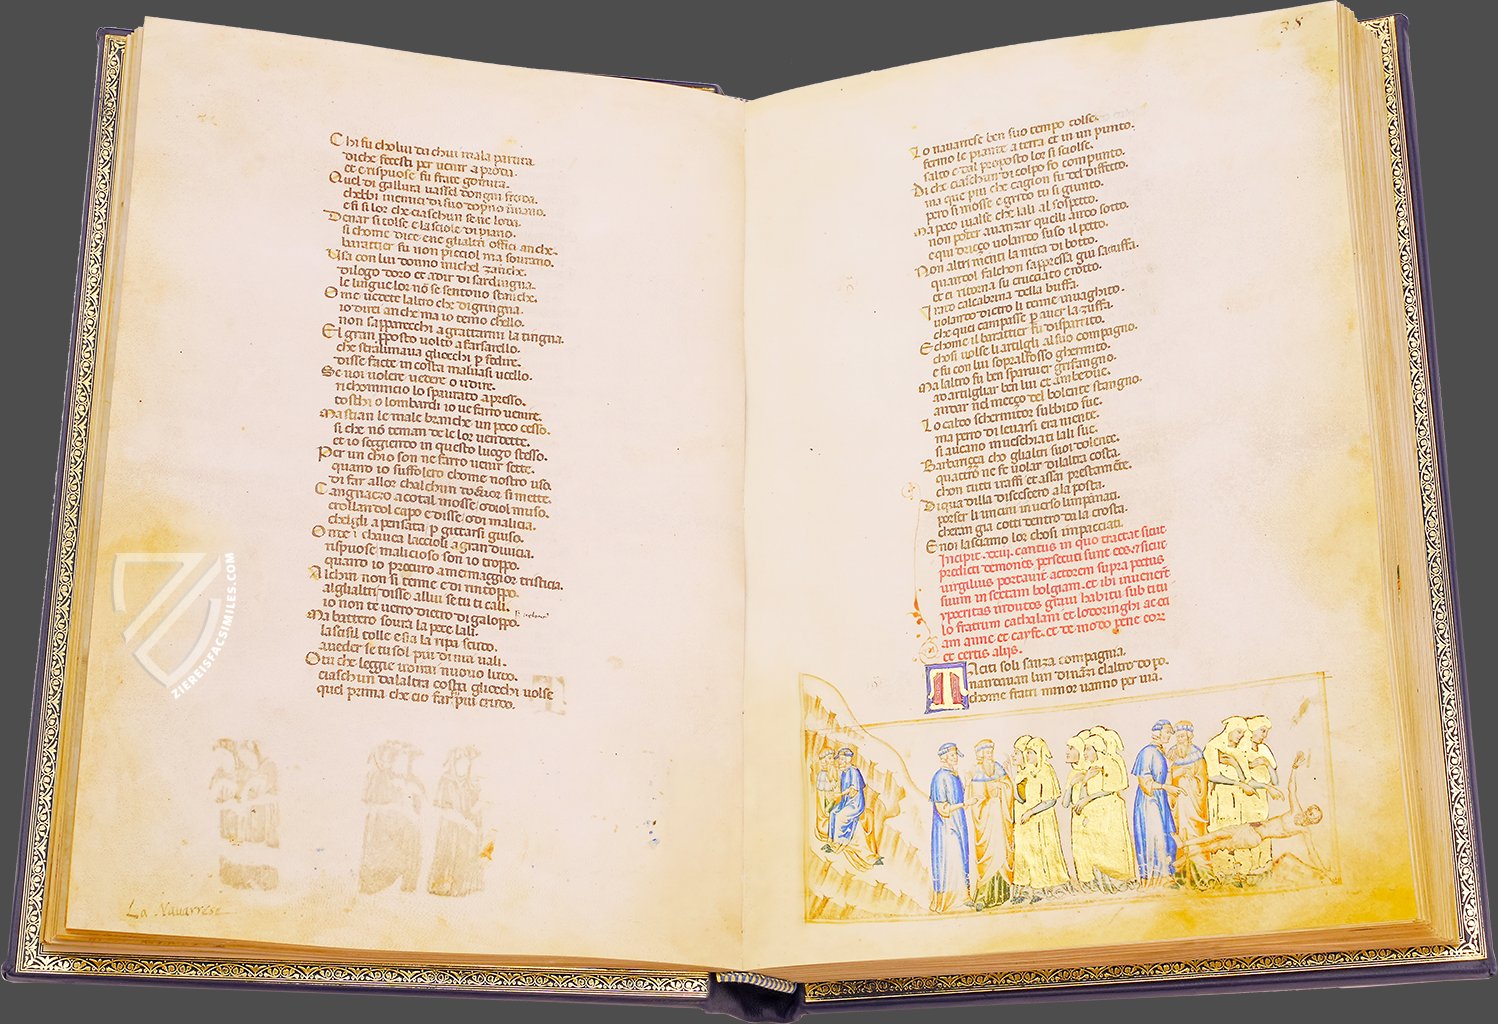 Chi fu cholui da chui mala partita
di che facesti per venir a proda
et e rispuose fu frate gomita
Quel di gallura vassel dongni froda
chebbi inemici di suo donno in mano
e fi si lor che ciaschun se ne loda
Denar si tolse e lasciole di piano
si chome dice e ne glialtri offici anche
barattier fu non picciol ma sovrano
Usa con lui donno michel zanche
di logo doro et a dir di sardingna
le lingue lor nō se sentono stanche
O me vedete laltro che digringna
io direi anche ma io temo chello
non sapparecchi a grattarmi la tingna
El gran pposto volto a farfarello
che stralunava gliocchi p fedire
disse fatte in costa malvasi ucello
Se voi volete vedere o udire
richomincio lo spaurato apresso
toschi o lombardi io ne farro venire
Ma stian le male branche un poco cesso
si che nō teman de le lor vendette
et io seggiendo in questo luogo stesso
Per un chio son ne farro venir sette
quano io suffolero chome nostro uso
di far allor chalchun de fuor si mette
Cangnazzo a cotal mosse odiol muso
crollandol capo e disse odi malicia
chelgli a pensata p gittarsi giuso
Onde i chavea laccioli a gran divicia
rispuose malicioso son io troppo
quano io procuro a mei maggior tristicia
Alichin non si tenne e di rintoppo
alghaltri disse allui se tu ti cali
io non te verro dietro di galoppo
Ma battero sovra la pece lali
lascisil colle e sia la ripa scudo
a veder se tu sol piu di noi vali
O tu che leggie udirai nuovo ludo
ciaschun da laltra costa gliocchi volse
quel prima che cio far piu crudo
La Navarrese
38
Lo navarrese ben suo tempo colse
fermo le piante a terra et in un punto
salto e dal proposto lor si sciolse
Di che ciaschun di colpo fo compunto
ma que piu che cagion fu del diffetto
pero si mosse e grido tu si giunto
Ma poco valse che lali al sospetto
non poter avanzar quelli ando sotto
e qui drizzo volando suso il petto
Non altrimenti la nitra di botto
quandol falchon sappressa giu sattuffa
et ei ritorna su crucciato e rotto
Irato calcabrina della buffa
volando dietro li tenne invaghito
che quei campasse p aver la zuffa
E chome il barattier fu disparito
chosi volse li artilgli al suo compagno
e fu con lui sopralfosso ghermito
Ma laltro fu ben sparvier grifangno
ad artilgliar ben lui et ambedue
cadder nel mezzo del bolente stangno
Lo caldo schermitor subbito fue
ma pero di levarsi era niente
si aveano inveschiati lali sue
Barbarizza cho glialtri suoi dolente
quattro ne fe volar dilaltra costa
chon tutti i raffi et assai prestamēte
Di qua di lla discesero a la posta
porser li uncini inverso limpaniati
cheran gia cotti dentro da la crosta
E noi lasciamo lor chosi impacciati
Incipit .xxiij. cantus in quo tractat sicut
predicti demones persecuti sunt eos. et sicut
virgilius portavit actorem supra pectus
suum in sextam bolgiam. et ibi invenerunt
ypocritas indutos gravi habitu sub titu
lo fratrum cathalani et lodoringhi ac ei
am anne et cayfe. et de modo pene eor
et certis aliis.
Taciti soli sanza compagnia
nandavam lun dināzi elaltro dopo
chome frati minor vanno per via
ZIEREISFACSIMILES.COM